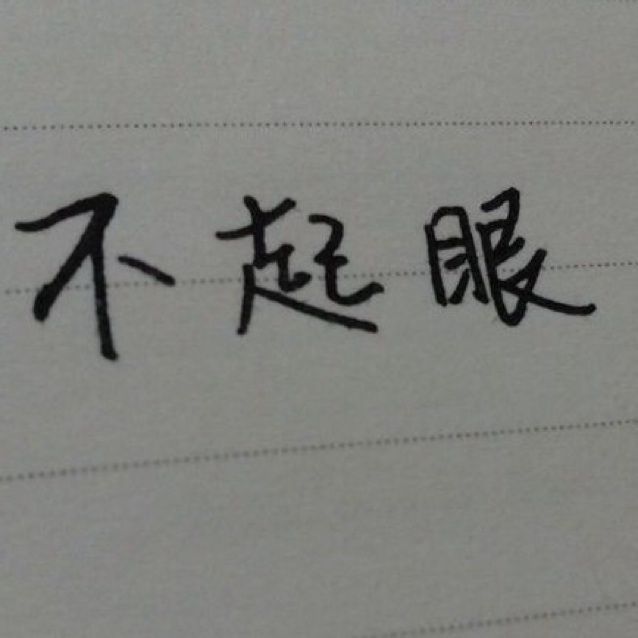 不起眼